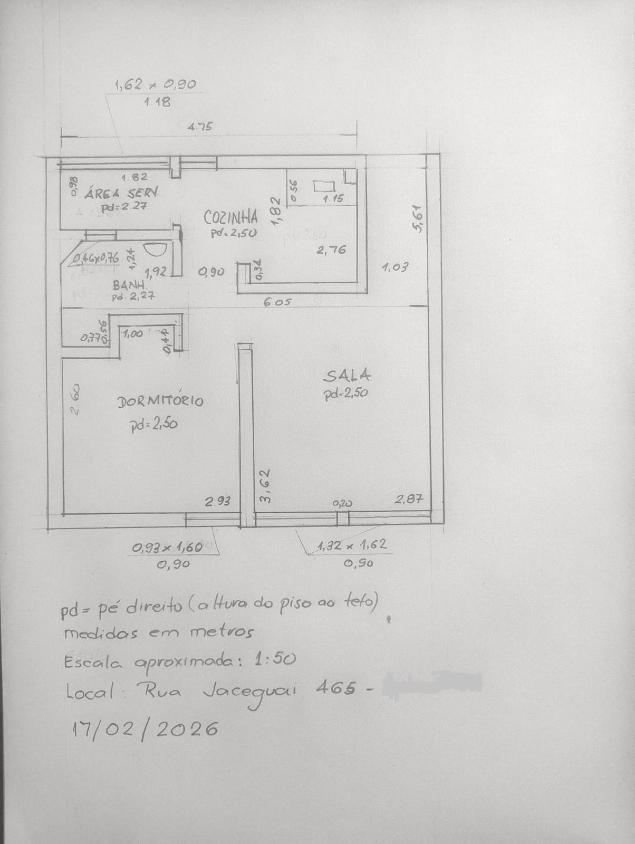 1,62 x 0,90
1.18
4.75
0,98
1.82
ÁREA SERV.
pd=2.27
COZINHA
pd=2,50
1,82
0.56
1.15
2,76
5,61
0,46x0,76
1,24
1,92
BANH.
pd 2,27
0.90
0,34
1.03
6.05
0,77
0,56
1,00
0,44
2.60
DORMITÓRIO
pd=2,50
SALA
pd=2,50
2.93
3,62
0,20
2,87
0,93 x 1,60
0,90
1,32 x 1,62
0,90
pd= pé direito (altura do piso ao teto)
medidas em metros
Escala aproximada: 1:50
Local: Rua Jaceguai 465 -
17/02/2026